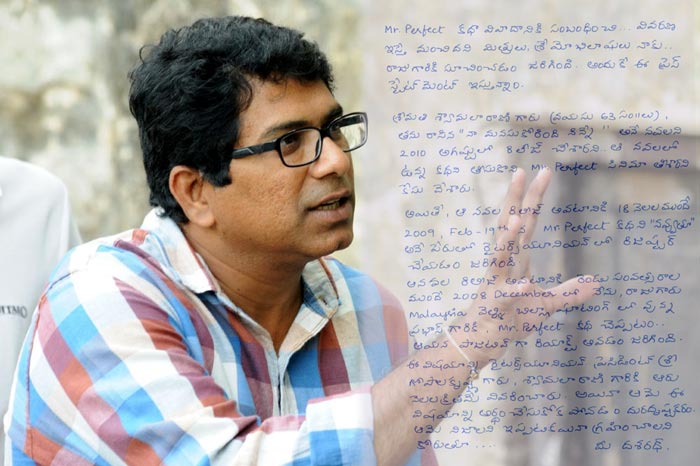 Mr. Perfect కథా వివాదానికి సంబంధించి... వివరణ
ఇస్తే మంచిదని మిత్రులు, శ్రేయోభిలాషులు నాకు..
రాజుగారికి సూచించడం జరిగింది. అందుకే ఈ ప్రెస్
స్టేట్ మెంట్ ఇస్తున్నాం.
శ్రీమతి శ్యామలా రాణి గారు (వయసు 63 సం॥లు),
తను రాసిన "నా మనసుకోరింది నిన్నే" అనే నవలని
2010 ఆగష్టులో రిలీజ్ చేశారని.. ఆ నవలలో
ఉన్న కథని తీసుకొని Mr. Perfect సినిమా తీశారని
కేసు వేశారు.
అయితే, ఆ నవల రిలీజ్ అవటానికి 18 నెలలముందే
2009, Feb-19th న Mr. Perfect కథని "నవ్వుతూ"
అనే పేరుతో రైటర్స్ యూనియన్ లో రిజిష్టర్
చేయడం జరిగింది.
ఆ నవల రిలీజ్ అవటానికి రెండు సంవత్సరాల
ముందే 2008 December లో నేను, రాజుగారు
Malaysia వెళ్ళి బిల్లా షూటింగ్ లో వున్న
ప్రభాస్ గారికి, Mr. Perfect కథ చెప్పటం..
ఆయన పాజిటివ్ గా రియాక్ట్ అవడం జరిగింది.
ఈ విషయాన్ని రైటర్స్ యూనియన్ ప్రెసిడెంట్ శ్రీ
గోపాలకృష్ణ గారు, శ్యామలా రాణి గారికి ఆరు
నెలలక్రితమే వివరించారు. అయినా ఆమె ఈ
విషయాన్ని అర్థం చేసుకోక పోవడం దురదృష్టకరం.
ఆమె నిజాలని ఇప్పటికయినా గ్రహించాలని
కోరుతూ....
మీ దశరథ్.